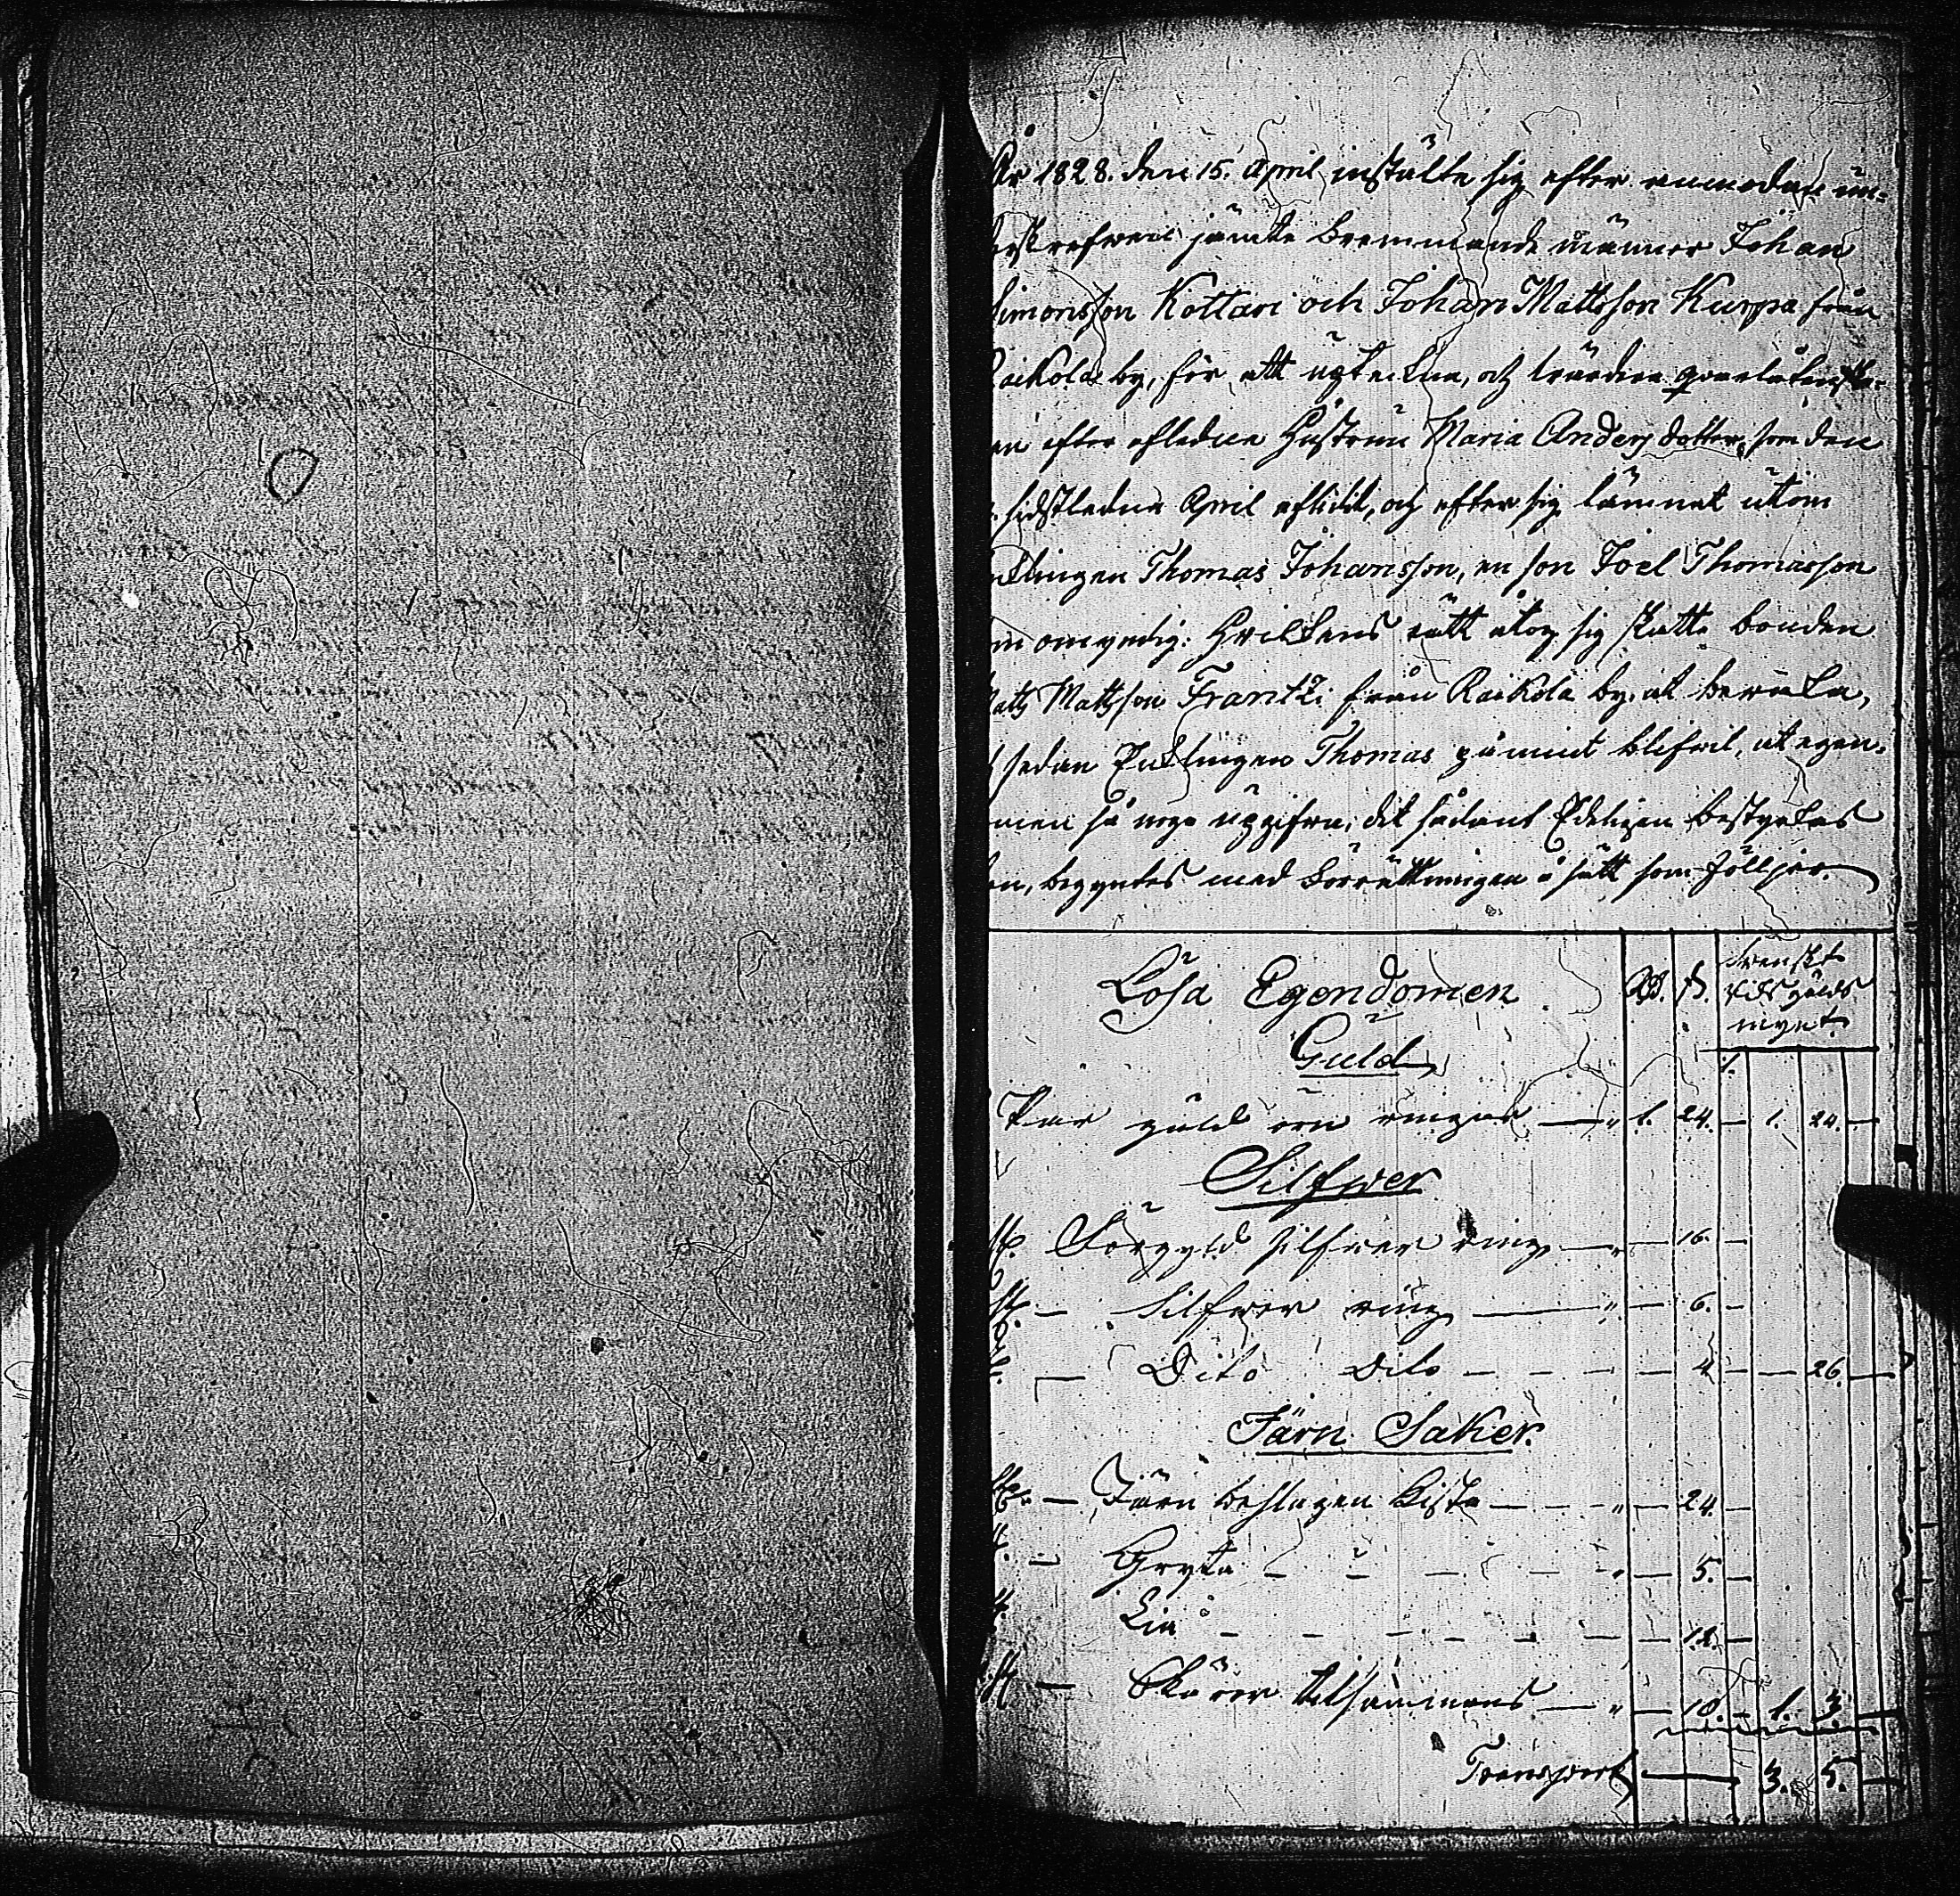 År 1828. den 15. April instälte sig efter anmodan un=
derskrefwen jämte Exammande männer Johan
Simonsson Kottari och Johan Mattsson Kurppa från
Raikola by, för att upteckna, och wärdera qvarlåtenska=
en efter afledne Hustrun Maria Anders dotter, som den
sidstledne April aflidit, och efter sig lämnat utom
nklingen Thomas Johansson, en son Joel Thomasson
m omyndig: Hvilkens rätt åtog sig skatte bonden
Matts Mattsson Frantzi från Raikola by, at bewaka,
sedan Enklingen Thomas påmint blifwit, at egen=
men så noga uppgifwa, det sådant Edeligen bestyrkas
kan, begyntes med förrättningen å sätt som följjer.
Lösa Egendomen Rd. ß. Swenskt riksgälds mynt
Guld
Par guld örn ringar — " 1. 24. — 1. 24. —
Silfwer
st. Förgyld silfwer ring — " — 16. —
st. — Silfwer ring — " — 6. —
st. — Dito dito — — — 4 — — 26. —
Järn Saker.
st. — Järn beslagen Kista — — — " — 24. —
st. — Gryta — — — — " — 5. —
st. Lia — — — — — — 12. —
st. — Skäror tilsammans — " — 10. — 1. 3. —
Transport — 3. 5. —